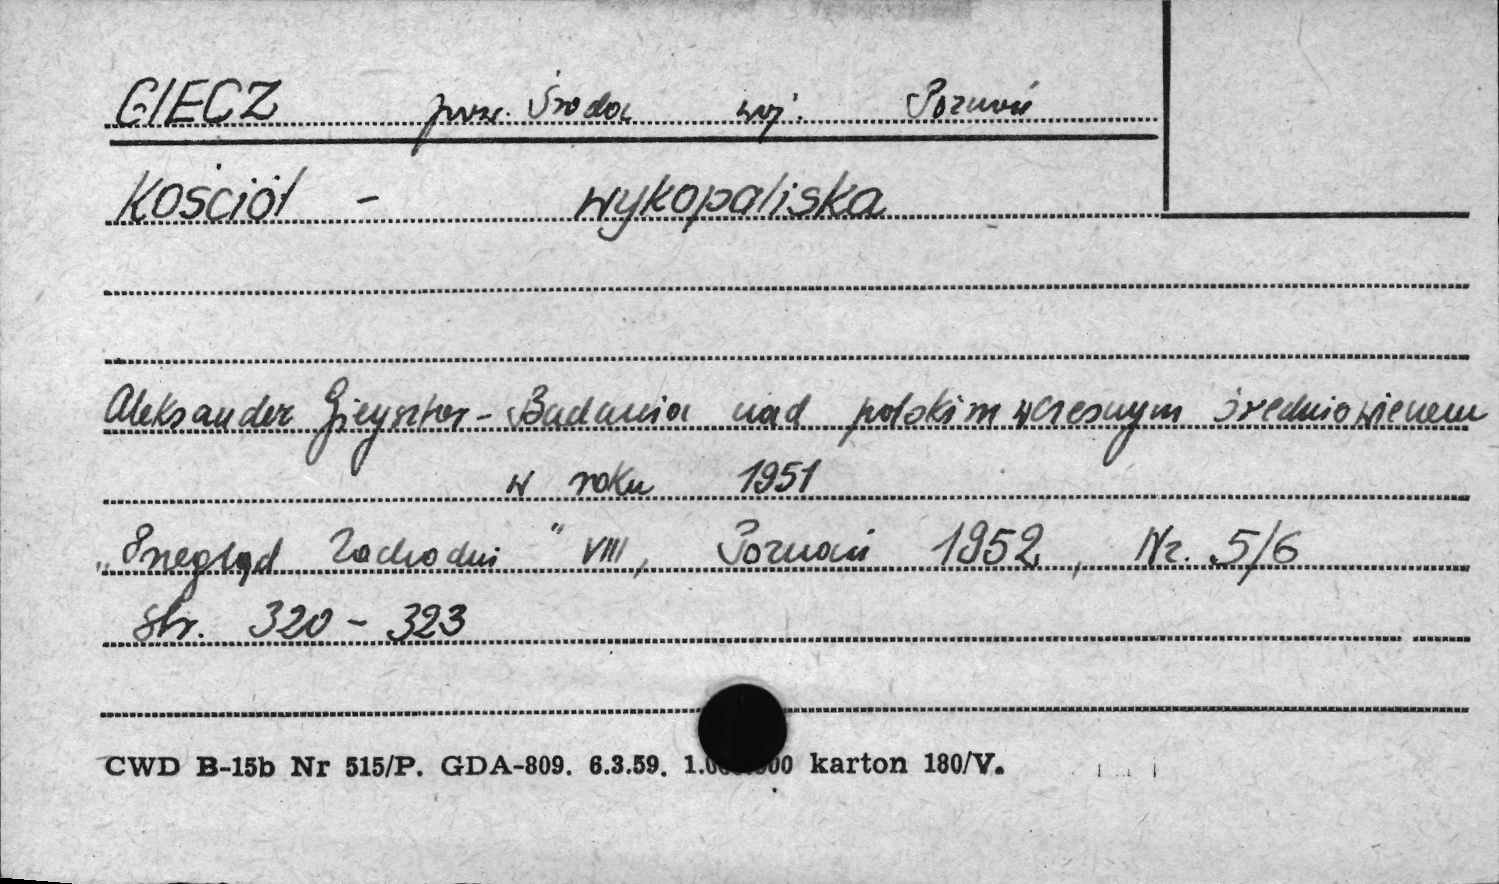 GIECZ pow. Środa woj. Poznań
Kościół - wykopaliska
Aleksander Gieysztor - Badania nad polskim wczesnym średniowieczem
w roku 1951
"Przegląd Zachodni" VIII, Poznań 1952, Nr. 5/6
str. 320 - 323
CWD B-15b Nr 515/P. GDA-809. 6.3.59. karton 180/V.